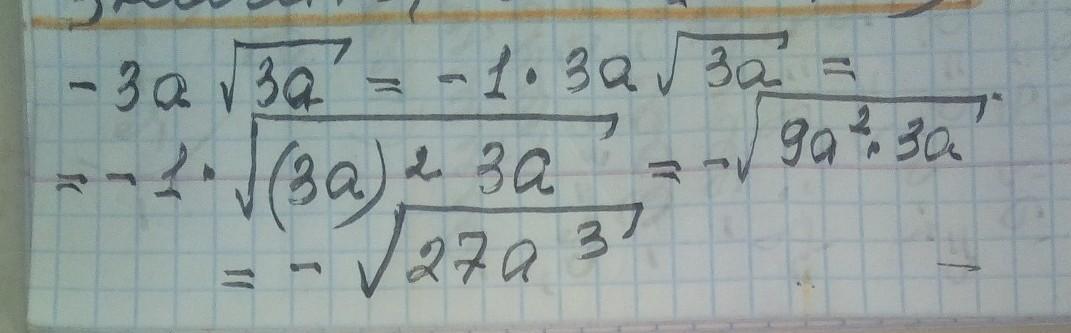 - 3a √3a = - 1 · 3a √3a =
= - 1 · √(3a)² 3a = - √9a² · 3a
= - √27a³